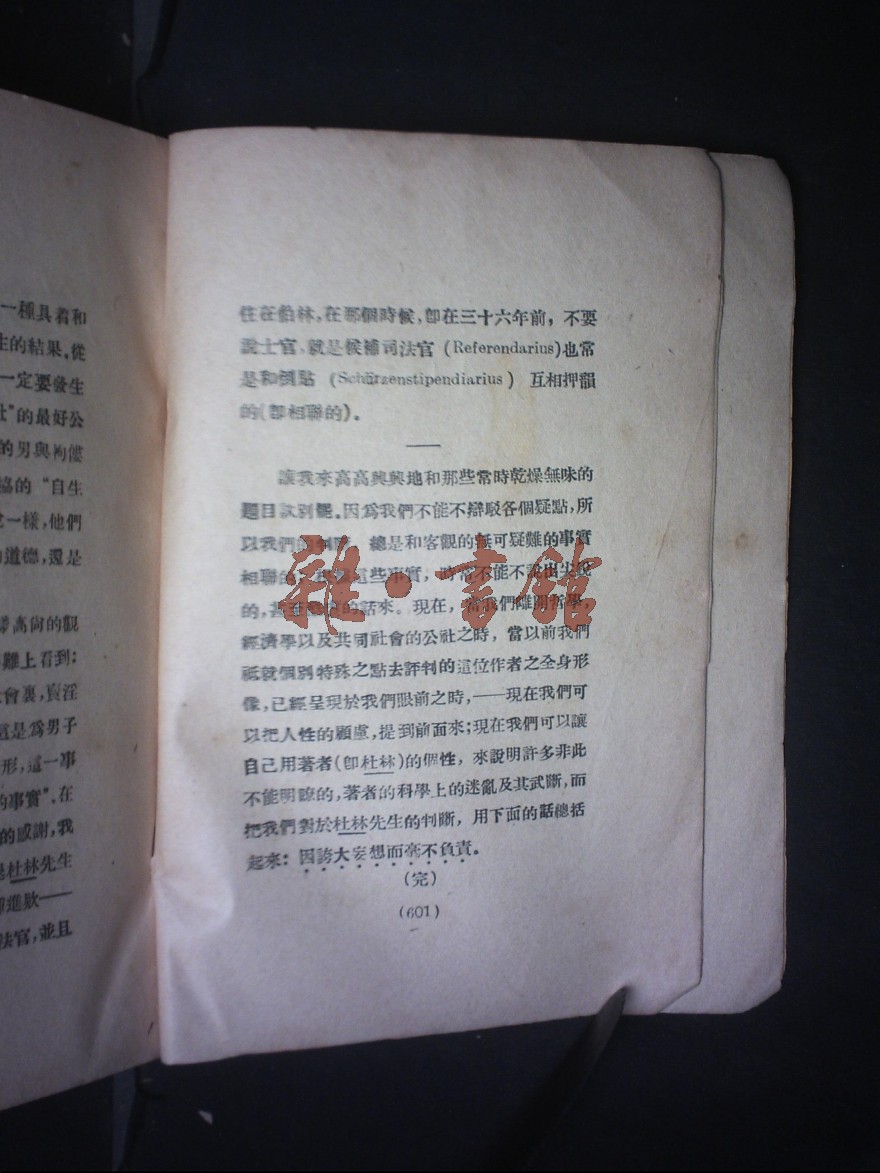 一種具着和
生的結果,從
一定要發生
社”的最好公
的男與
協的“自生
一樣,他們
道德,還是
高尙的觀
難上看到:
會裏,賣淫
這是爲男子
形,這一事
的事實”.在
的感謝,我
是杜林先生
進欺——
法官,並且
住在伯林,在那個時候,卽在三十六年前,不要
說士官,就是候補司法官 (Referendarius)也常
是和倒貼 (Schürzenstipendiarius) 互相押韻
的(卽相聯的)。
讓我來高高興興地和那些常時乾燥無味的
題目訣別罷.因爲我們不能不辯駁各個疑點,所
以我們的判斷,總是和客觀的無可疑難的事實
相聯的,這些事實,時常不能不說出尖銳
的,甚至的話來。現在,當我們離開哲學,
經濟學以及共同社會的公社之時,當以前我們
祗就個別特殊之點去評判的這位作者之全身形
像,已經呈現於我們眼前之時,——現在我們可
以把人性的顧慮,提到前面來;現在我們可以讓
自己用著者(卽杜林)的個性,來說明許多非此
不能明瞭的,著者的科學上的迷亂及其武斷,而
把我們對於杜林先生的判斷,用下面的話總括
起來:因誇大妄想而毫不負責。
(完)
(601)
雜·書館